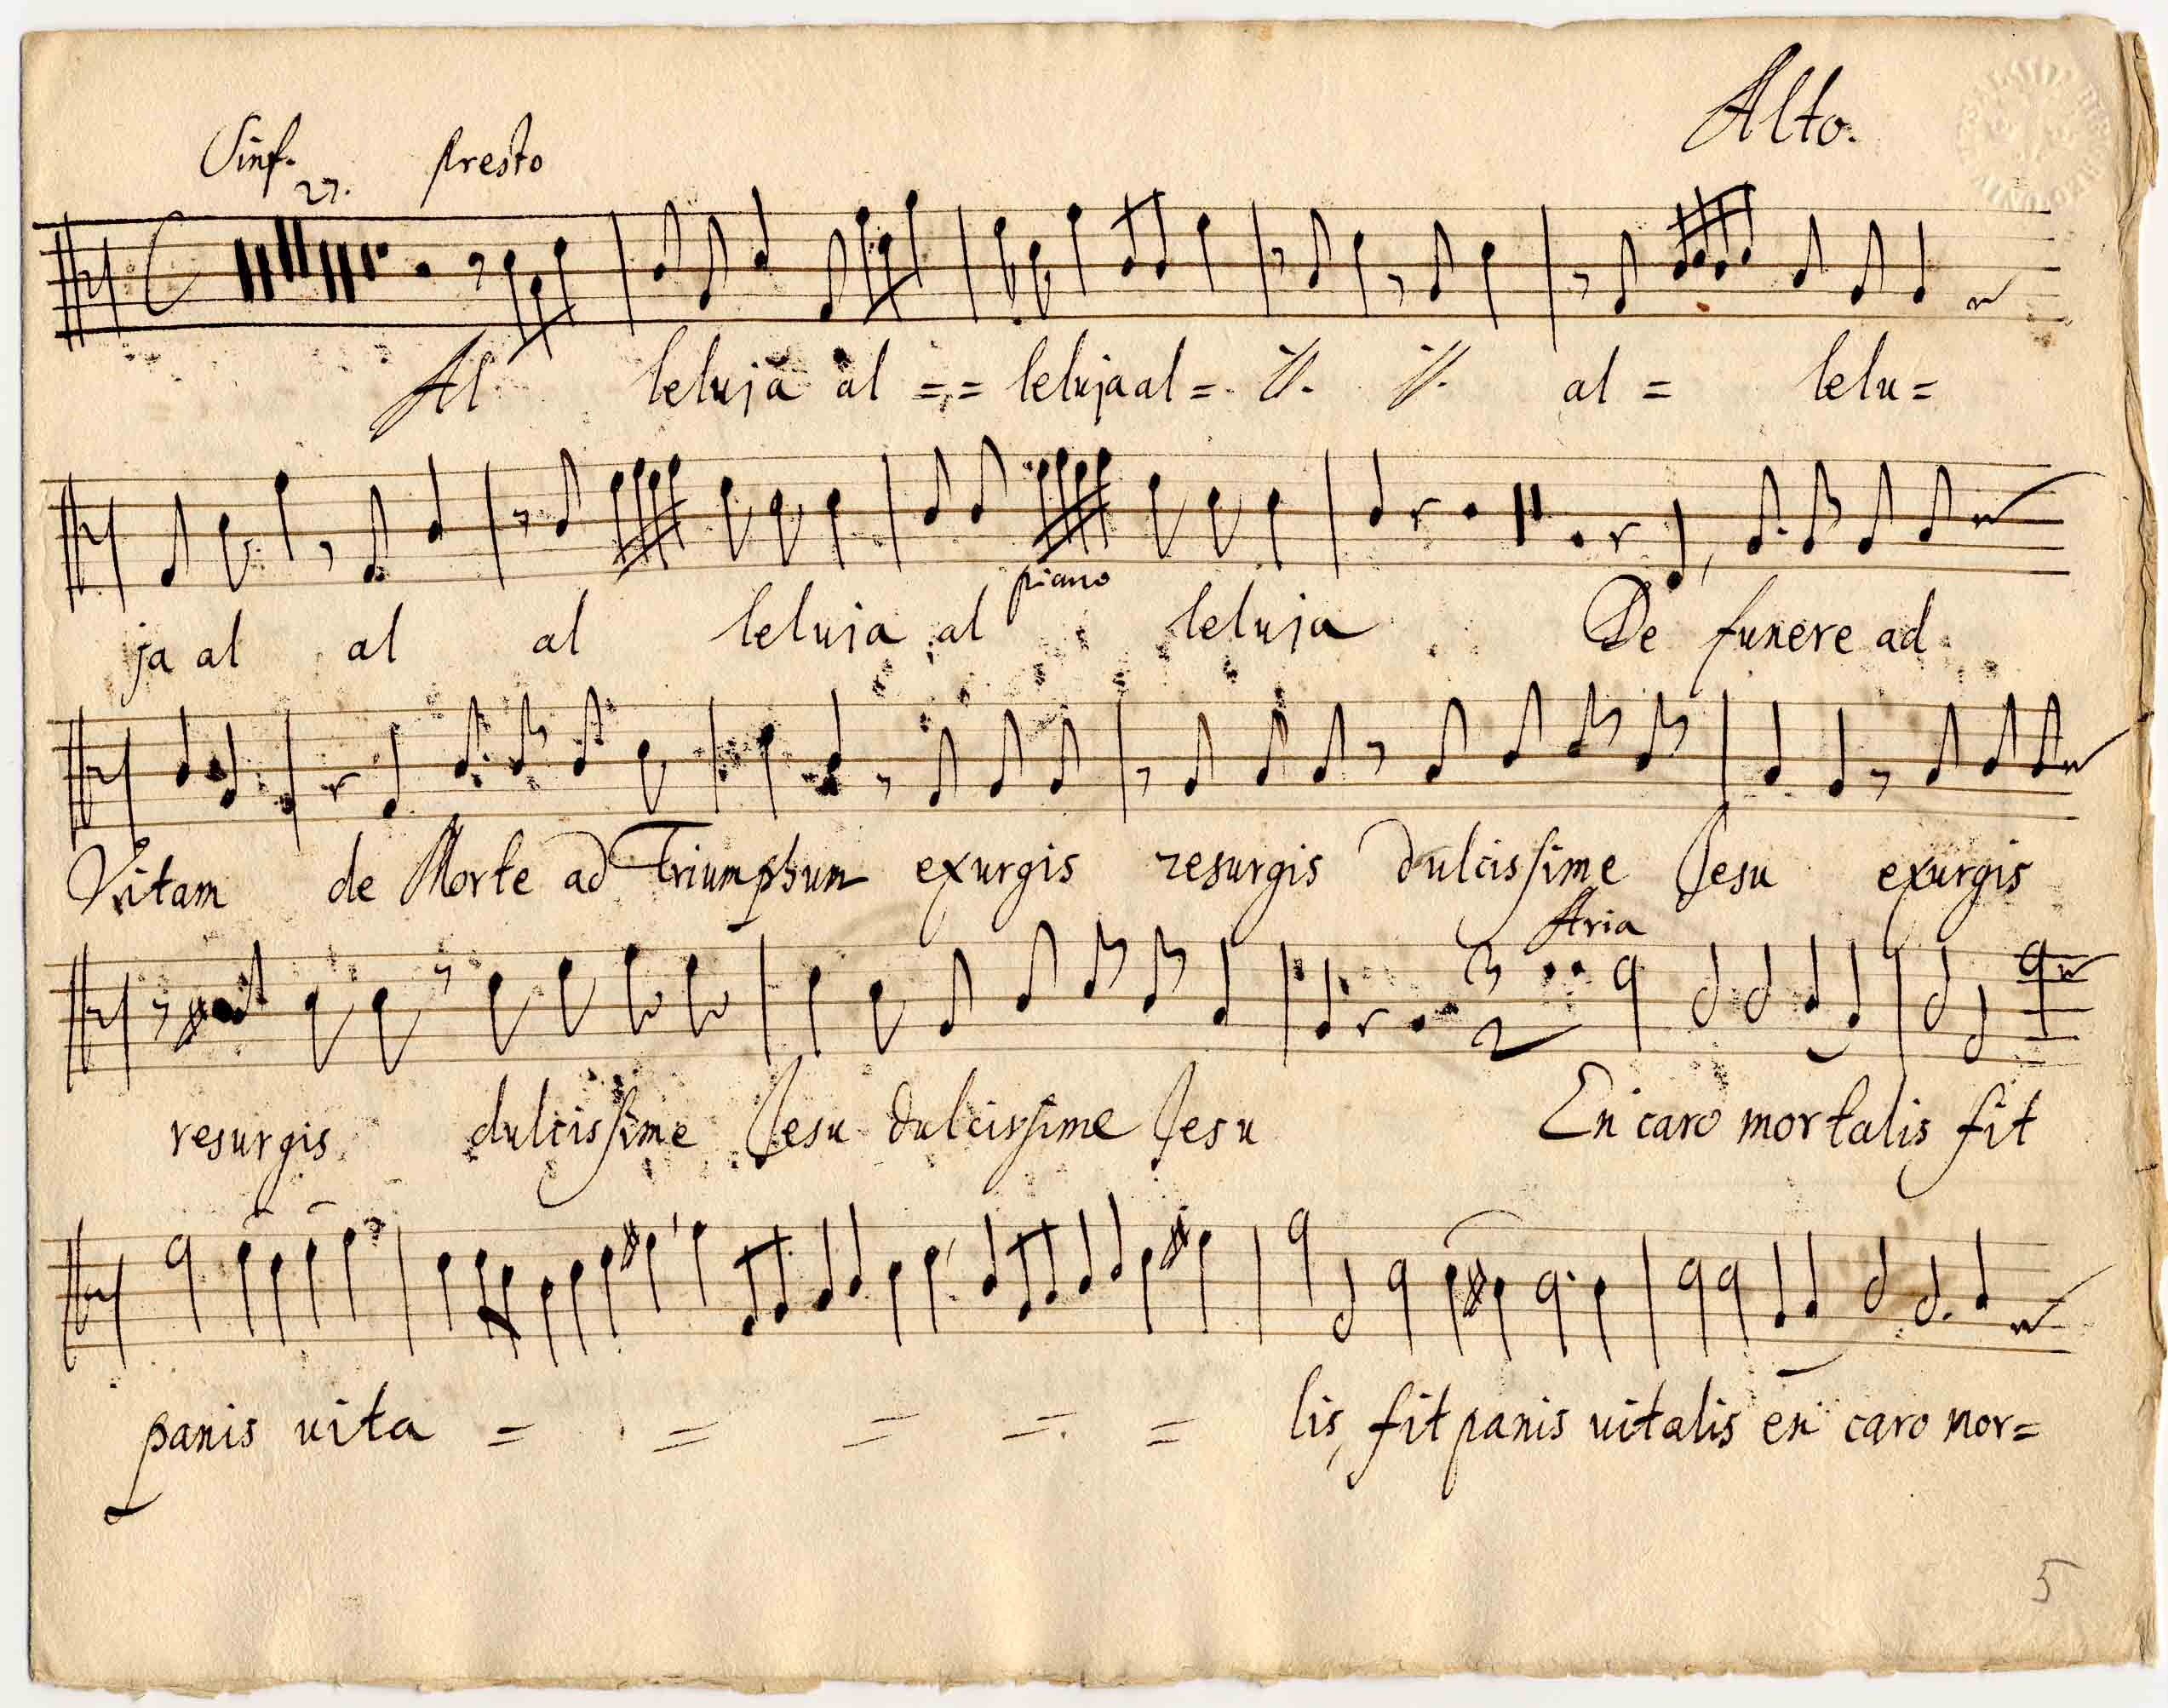 Alto.
Sinf. 27. Presto
Al leluja al = = lelujaal = ij. ij. al = lelu=
piano
ja al al al leluja al leluja De funere ad
Vitam de Morte ad Triumphum exurgis resurgis dulcissime Jesu exurgis
Aria
3
2
resurgis dulcissime Jesu dulcissime Jesu En caro mortalis fit
panis vita = = = = = lis, fit panis vitalis en caro mor=
5